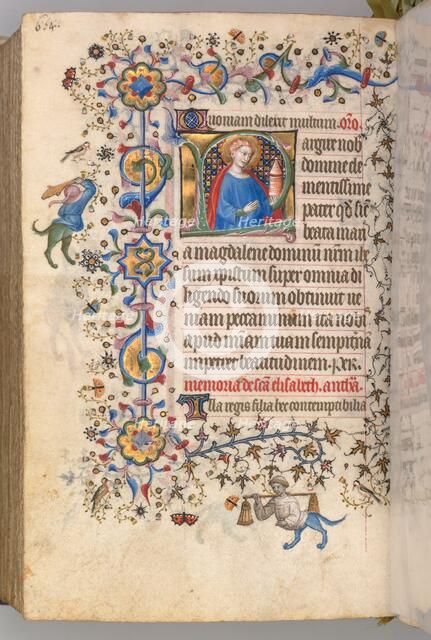 634.
Quoniam dilexit multum. Oro
argire nob
domine cle
mentissime
pater qd sic
beata mari
a magdalene dominum nrm ihe
sum xpistum super omnia di
ligendo suorum obtinuit ue
niam peccaminum ita nobis
apud miam tuam sempiterna
impetret beatitudinem. Per.
memoria de sca elisabeth. antha.
Illa regis filia hec contemptibilia
Heritage
Heritage
Heritage
Heritage
Heritage